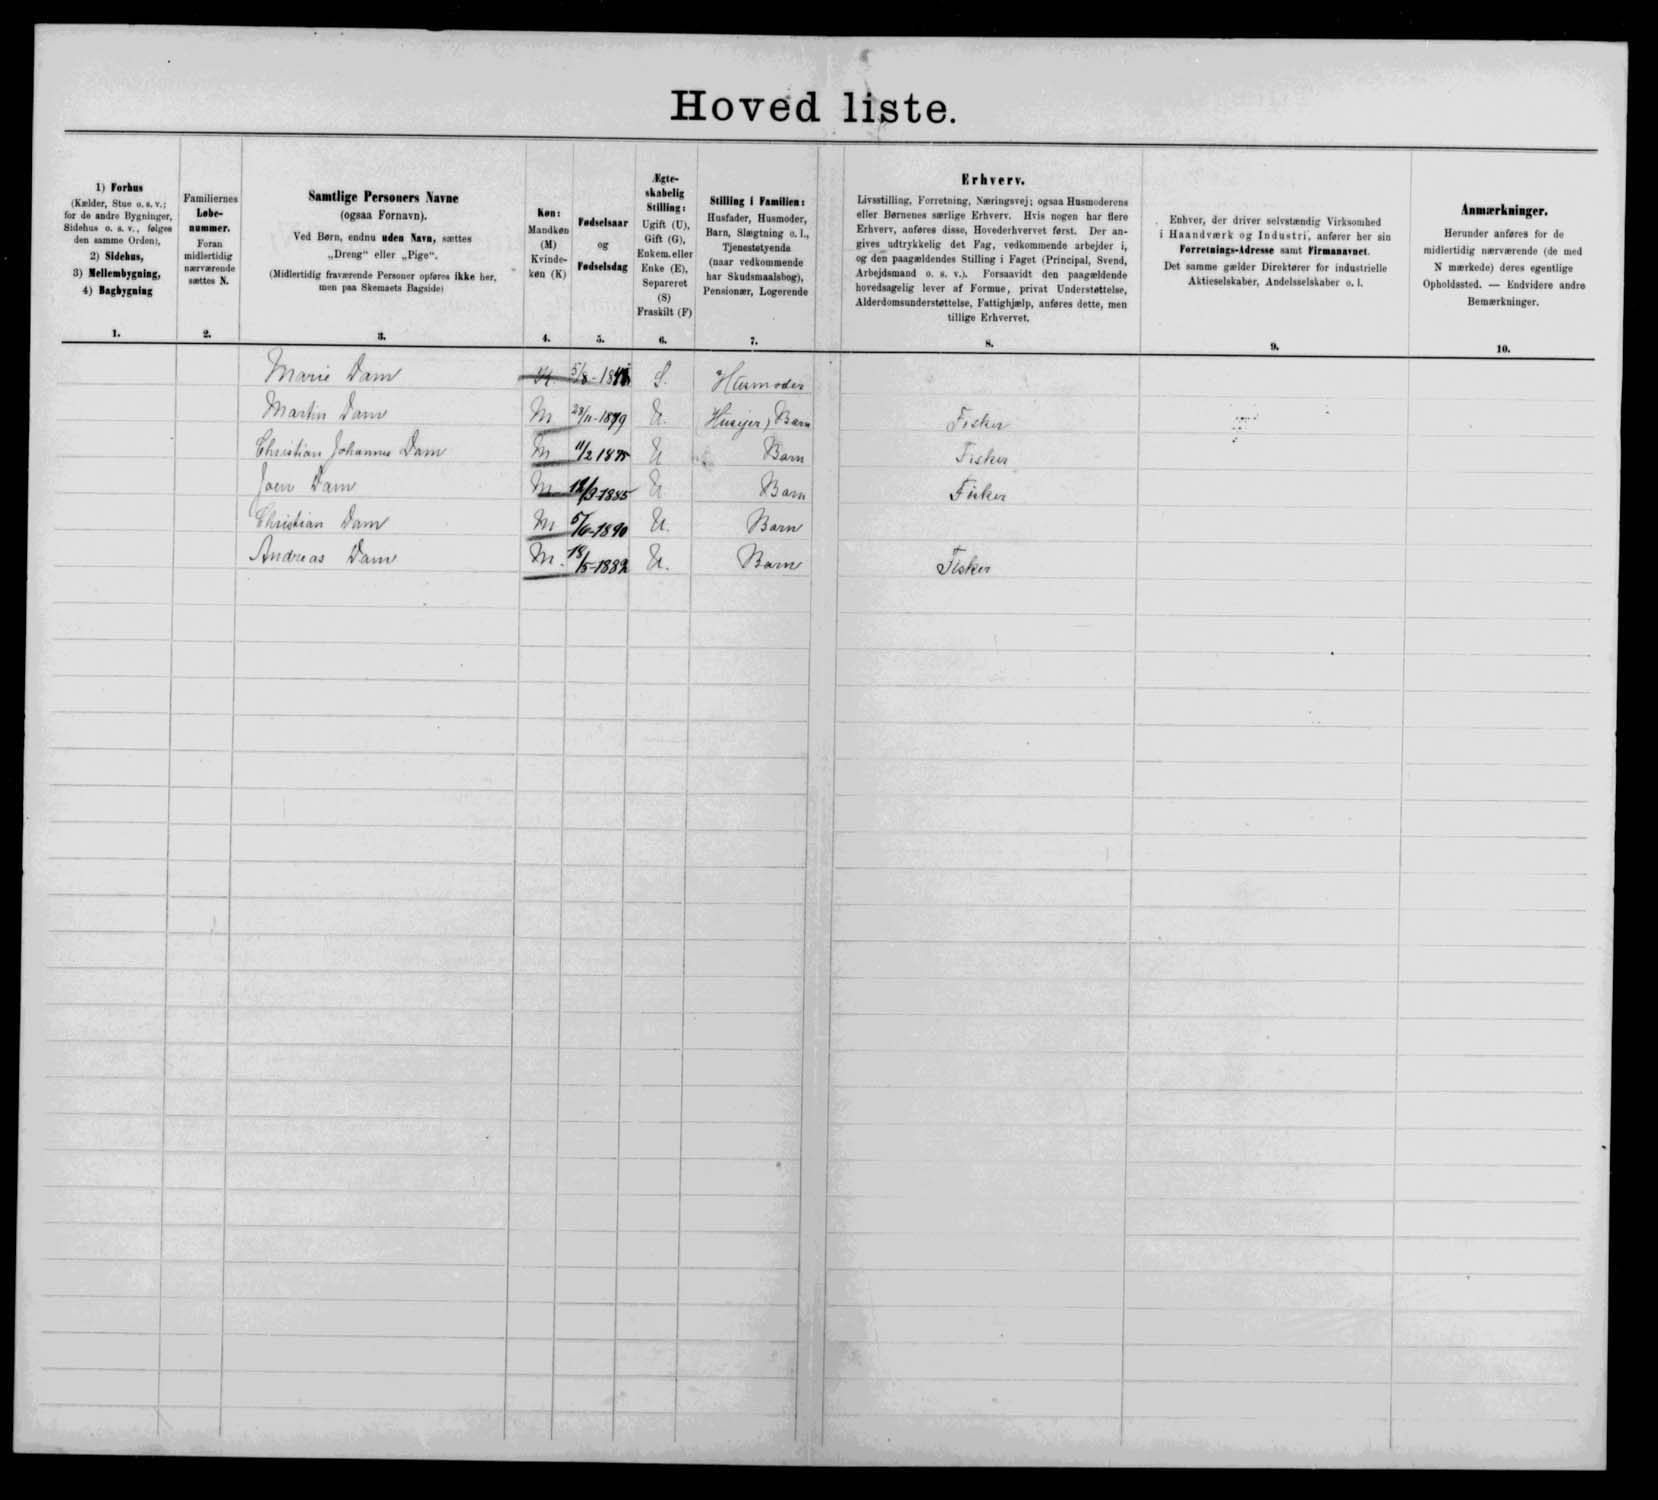 Hoved liste.
1) Forhus
(Kælder, Stue o. s. v.;
for de andre Bygninger,
Sidehus o. s. v., følges
den samme Orden),
2) Sidehus,
3) Mellembygning,
4) Bagbygning
1.
Familiernes
Løbe-
nummer.
Foran
midlertidig
nærværende
sættes N.
2.
Samtlige Personers Navne
(ogsaa Fornavn).
Ved Børn, endnu uden Navn, sættes
„Dreng“ eller „Pige“.
(Midlertidig fraværende Personer opføres ikke her,
men paa Skemaets Bagside)
3.
Køn:
Mandkøn
(M)
Kvinde-
køn (K)
4.
Fødselsaar
og
Fødselsdag
5.
Ægte-
skabelig
Stilling:
Ugift (U),
Gift (G),
Enkem. eller
Enke (E),
Separeret
(S)
Fraskilt (F)
6.
Stilling i Familien:
Husfader, Husmoder,
Barn, Slægtning o. l.,
Tjenestetyende
(naar vedkommende
har Skudsmaalsbog),
Pensionær, Logerende
7.
Erhverv.
Livsstilling, Forretning, Næringsvej; ogsaa Husmoderens
eller Børnenes særlige Erhverv. Hvis nogen har flere
Erhverv, anføres disse, Hovederhvervet først. Der an-
gives udtrykkelig det Fag, vedkommende arbejder i,
og den paagældendes Stilling i Faget (Principal, Svend,
Arbejdsmand o. s. v.). Forsaavidt den paagældende
hovedsagelig lever af Formue, privat Understøttelse,
Alderdomsunderstøttelse, Fattighjælp, anføres dette, men
tillige Erhvervet.
8.
Enhver, der driver selvstændig Virksomhed
i Haandværk og Industri, anfører her sin
Forretnings-Adresse samt Firmanavnet.
Det samme gælder Direktører for industrielle
Aktieselskaber, Andelsselskaber o. l.
9.
Anmærkninger.
Herunder anføres for de
midlertidig nærværende (de med
N mærkede) deres egentlige
Opholdssted. — Endvidere andre
Bemærkninger.
10.
Marie Dam 5/8-18 S. Husmoder
Martin Dam M 23/11-1879 U. (Husejer) Barn Fisker
Christian Johannes Dam M 11/2 1875 U Barn Fisker
Joen Dam M /9-1885 U Barn Fisker
Christian Dam M 5/6-1890 U. Barn
Andreas Dam M. 18/5-1882 U. Barn Fisker